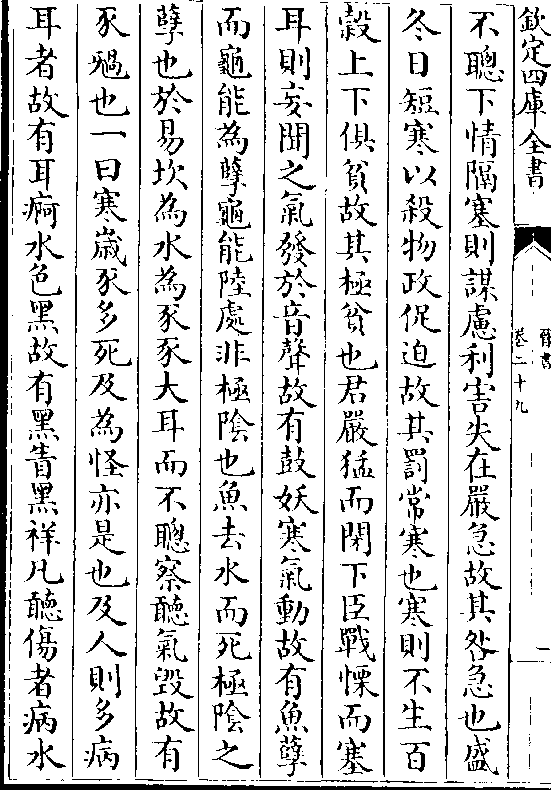 欽定四庫全書
晉書
卷二十九
一
不聰下情隔塞則謀慮利害失在嚴急故其咎急也盛
冬日短寒以殺物政促迫故其罰常寒也寒則不生百
穀上下俱貧故其極貧也君嚴猛而閉下臣戰慄而塞
耳則妄聞之氣發於音聲故有鼓妖寒氣動故有魚孽
而龜能為孽龜能陸處非極陰也魚去水而死極陰之
孽也於易坎為水為豕豕大耳而不聰察聽氣毀故有
豕禍也一曰寒歲豕多死及為怪亦是也及人則多病
耳者故有耳痾水色黑故有黑眚黑祥凡聽傷者病水